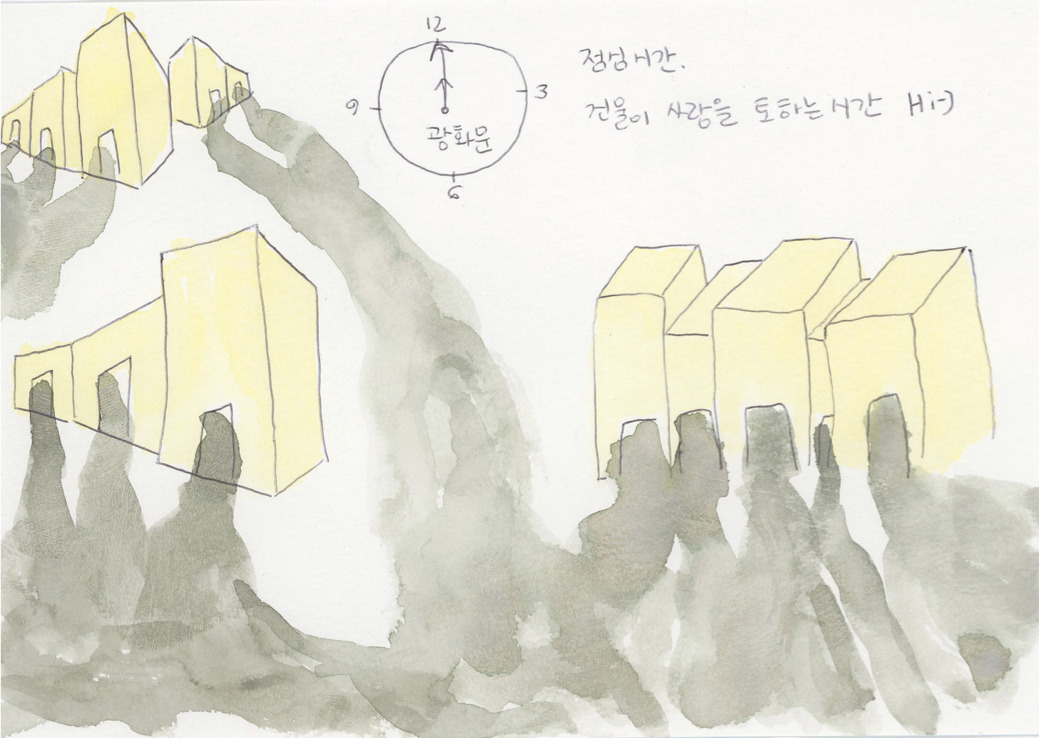 12
9
3
광화문
6
점심시간.
건물이 사람을 토하는 시간 Hi-)